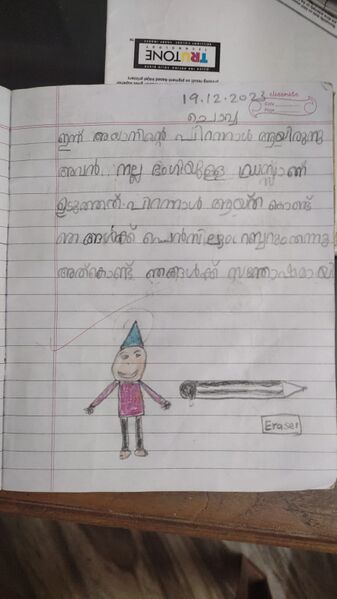 TRUTONE
TECHNOLOGY
classmate
Date
Page
19.12.2023
ചൊവ്വ
ഇന്ന് അയാന്റെ പിറന്നാൾ ആയിരുന്നു
അവൻ.. നല്ല ഭംഗിയുള്ള ഡ്രസ്സാണ്
ഉടുത്തത്. പിറന്നാൾ ആയത് കൊണ്ട്
ഞങ്ങൾക്ക് പെൻസിലും റബ്ബറും തന്നു
അത്കൊണ്ട് ഞങ്ങൾക്ക് സന്തോഷമായി
Eraser